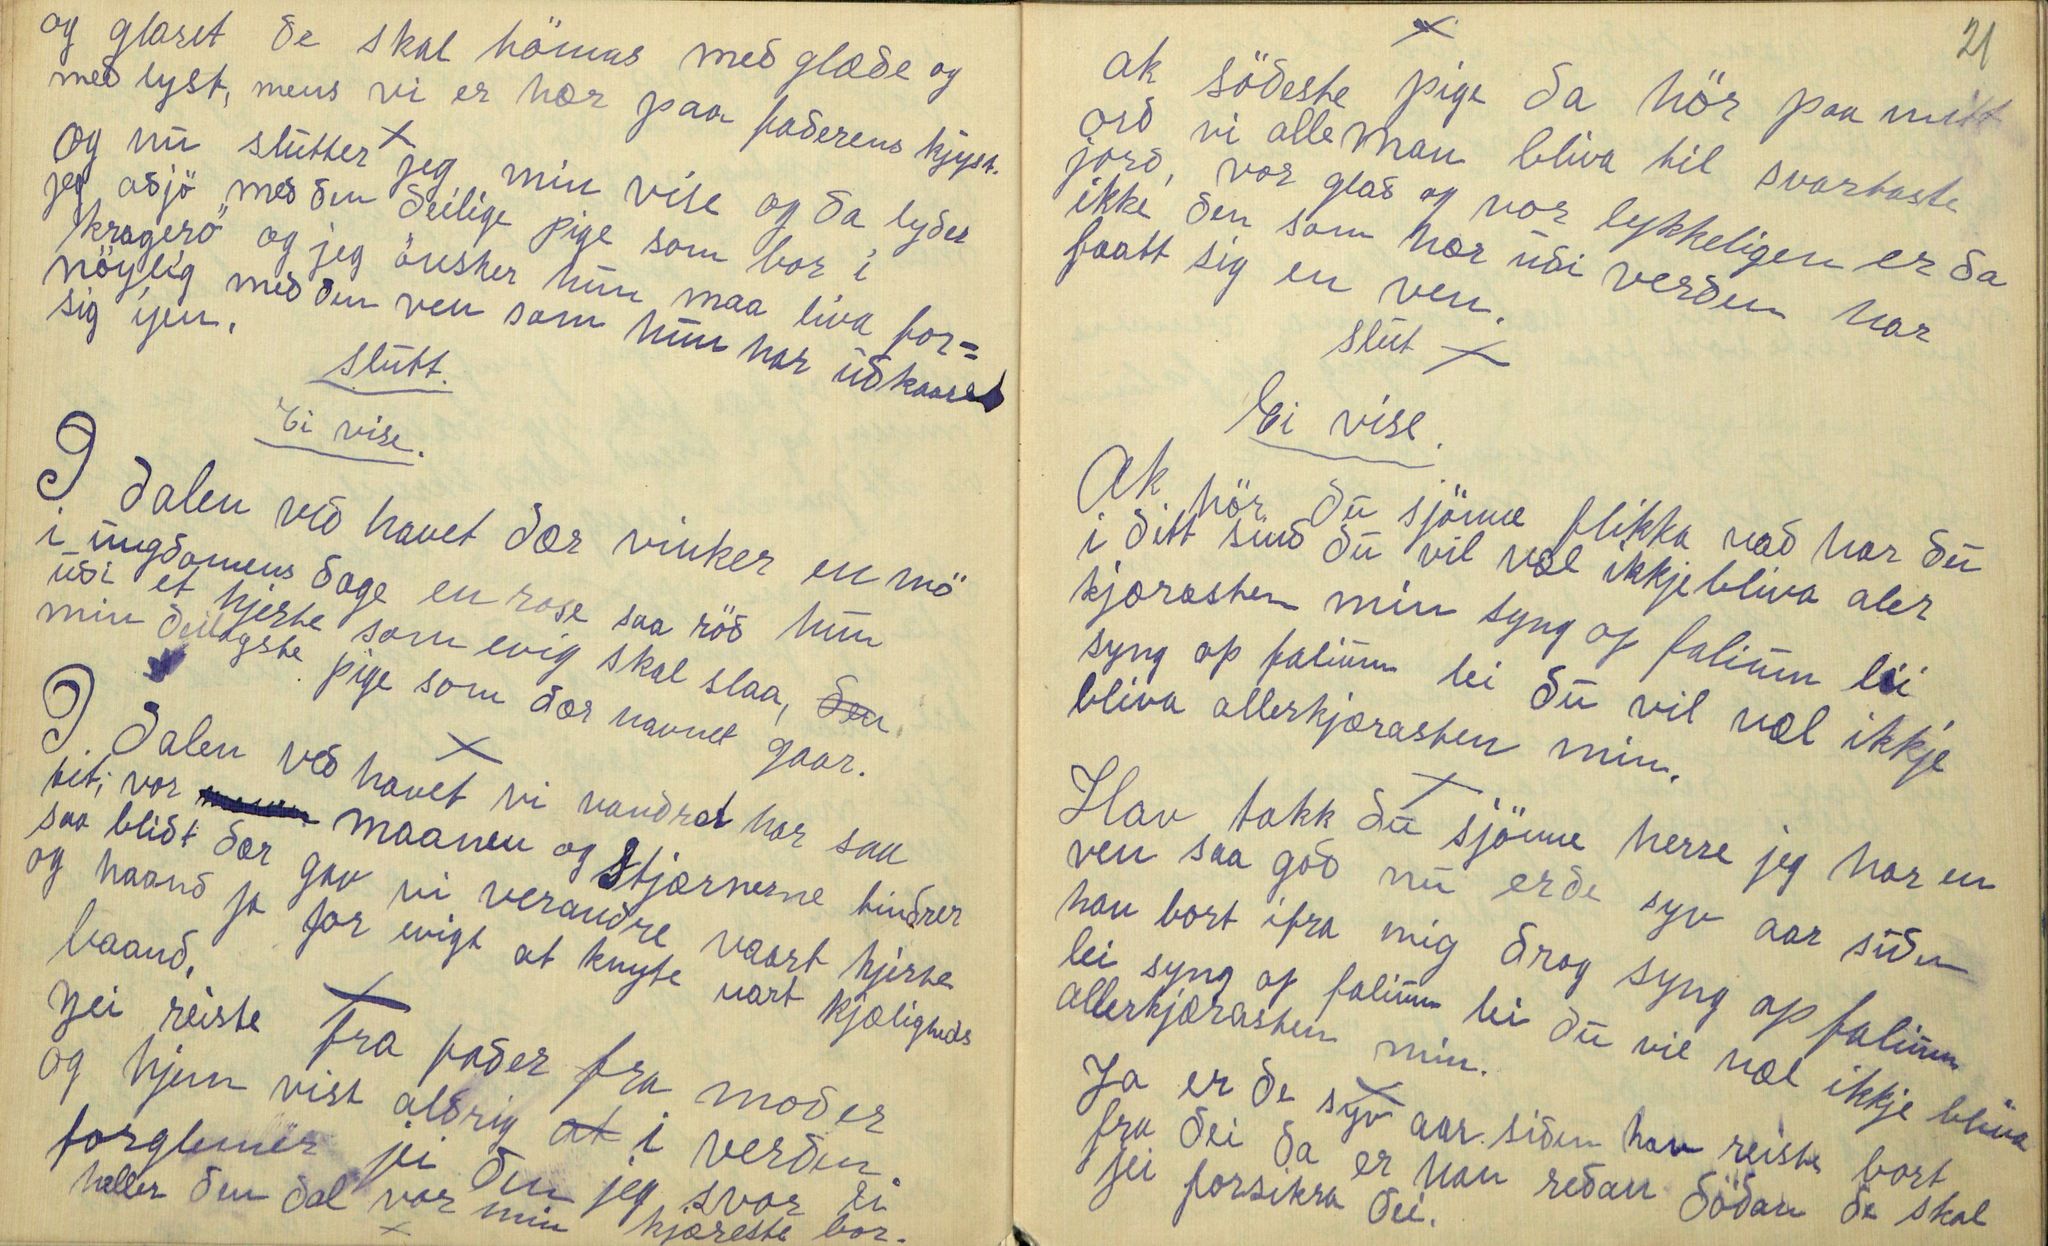 og glaset de skal hömas med glæde og
med lyst, mens vi er hær paa faderens kyst.
x
og nu slutter jeg min vise og da lyder
jeg adjö med den deilige pige som bor i
kragerö og jeg önsker hun maa liva for=
nöylig med den ven som hun har udkaaret
sig ijen.
Slutt.
Ei vise.
I dalen ved havet dær vinker en mö
i ungdomens dage en rose saa röd hun
udi et hjerte som evig skal slaa, den
min deiligste pige som dær navnet gaar.
x
I. dalen ved havet vi vandret har saa
tit, vor maanen og Stjærnerne tindrer
saa blidt dær gav vi verandre vaart hjerte
og haand ja for evigt at knyte vart kjæligheds
baand.
x
Jei reiste fra fader fra moder
og hjem vist aldrig at i verden
forglemer jei den jeg svor ei
heller den dal vor min kjæreste bor.
x
21
x
Ak södeste pige da hör paa mitt
ord vi alle man bliva til svartaste
jord, vor glad og vor lykkeligen er da
ikke den som hær udi verden har
faatt sig en ven.
slut x
Ei vise.
Ak hör du sjönne flikka vad har du
i ditt sind du vil væl ikkje bliva aler
kjærasten min syng op falium lei
syng op falium lei du vil væl ikkje
bliva allerkjærasten min.
x
Hav takk du sjönne herre jeg har en
ven saa god nu er de syv aar siden
han bort ifra mig drog syng op falium
lei syng op falium lei du vil væl ikkje bliva
allerkjærasten min.
x
Ja er de syv aar siden han reiste bort
fra dei da er han redan dödan de skal
jei forsikra dei.